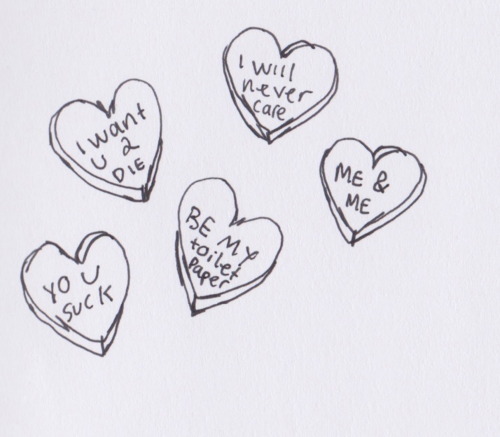 I will
never
care
I want
U 2
DIE
ME &
ME
BE MY
toilet
paper
YOU
SUCK